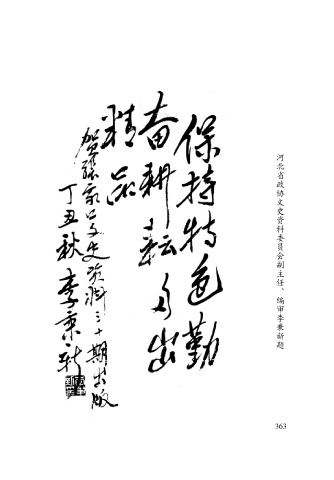 河北省政协文史资料委员会副主任、编审李秉新题
保持特色勤
奋耕耘多出
精品
贺张家口文史资料三十期出版
丁丑秋 李秉新
363